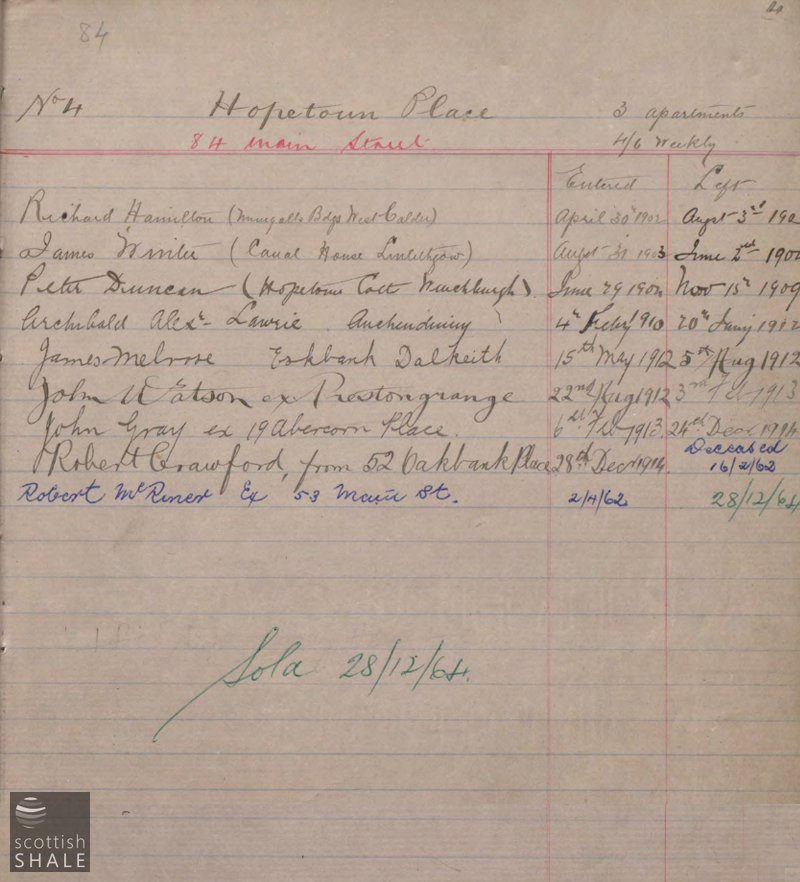 84
No 4 Hopetoun Place 3 apartments
84 Main Street 4/6 Weekly
Entered Left
Richard Hamilton ( Bdgs West Calder) April 30th 1902 Augst 3rd 190
James Winter (Canal House Linlithgow) Augst 31 1903 June 2nd 190
Peter Duncan (Hopetoun Cott Winchburgh) June 29 190 Nov 15th 1909
Archibald Alexr Lawrie Auchendinny 4th Feby 1910 20th Jany 1912
James Melrose Eskbank Dalkeith 15th May 1912 5th Aug 1912
John Watson ex Prestongrange 22nd Aug 1912 3rd Feb 1913
John Gray ex 19 Abercorn Place. 6th Feb 1913 24th Decr 1914
Robert Crawford, from 52 Oakbank Place 28th Decr 1914. Deceased 16/2/62
Robert Ex 53 Main St. 2/4/62 28/12/64
Sold 28/12/64.
scottish
SHALE